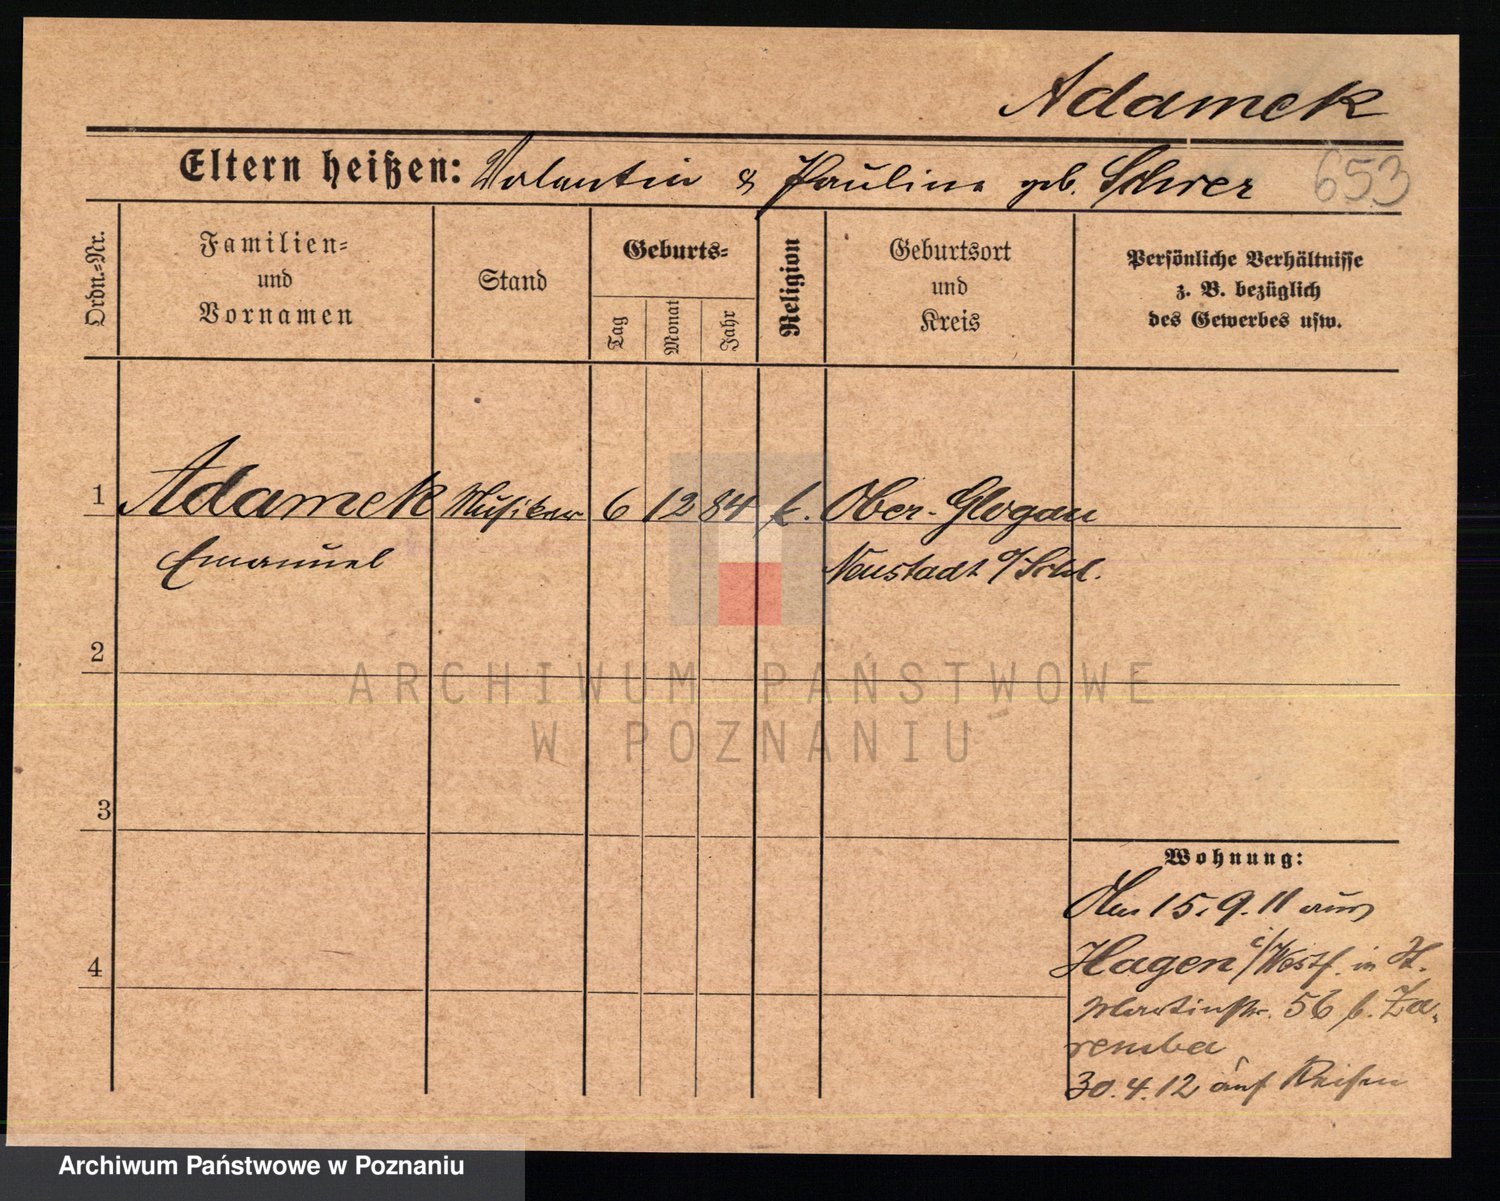 Adamek
Eltern heißen: Valentin & Pauline geb. Scherer 653
Ordn.-Nr.
Familien-
und
Vornamen
Stand
Geburts-
Tag
Monat
Jahr
Religion
Geburtsort
und
Kreis
Persönliche Verhältnisse
z. B. bezüglich
des Gewerbes usw.
1 Adamek Musiker 6 12 84 k. Ober-Glogau
Emanuel Neustadt o/Schl.
2
3
4
Wohnung:
15.9.11 aus
Hagen i/Westf. in St.
Martinstr. 56 b. Za-
remba
30.4.12 auf Reisen
ARCHIWUM PAŃSTWOWE
W POZNANIU
Archiwum Państwowe w Poznaniu